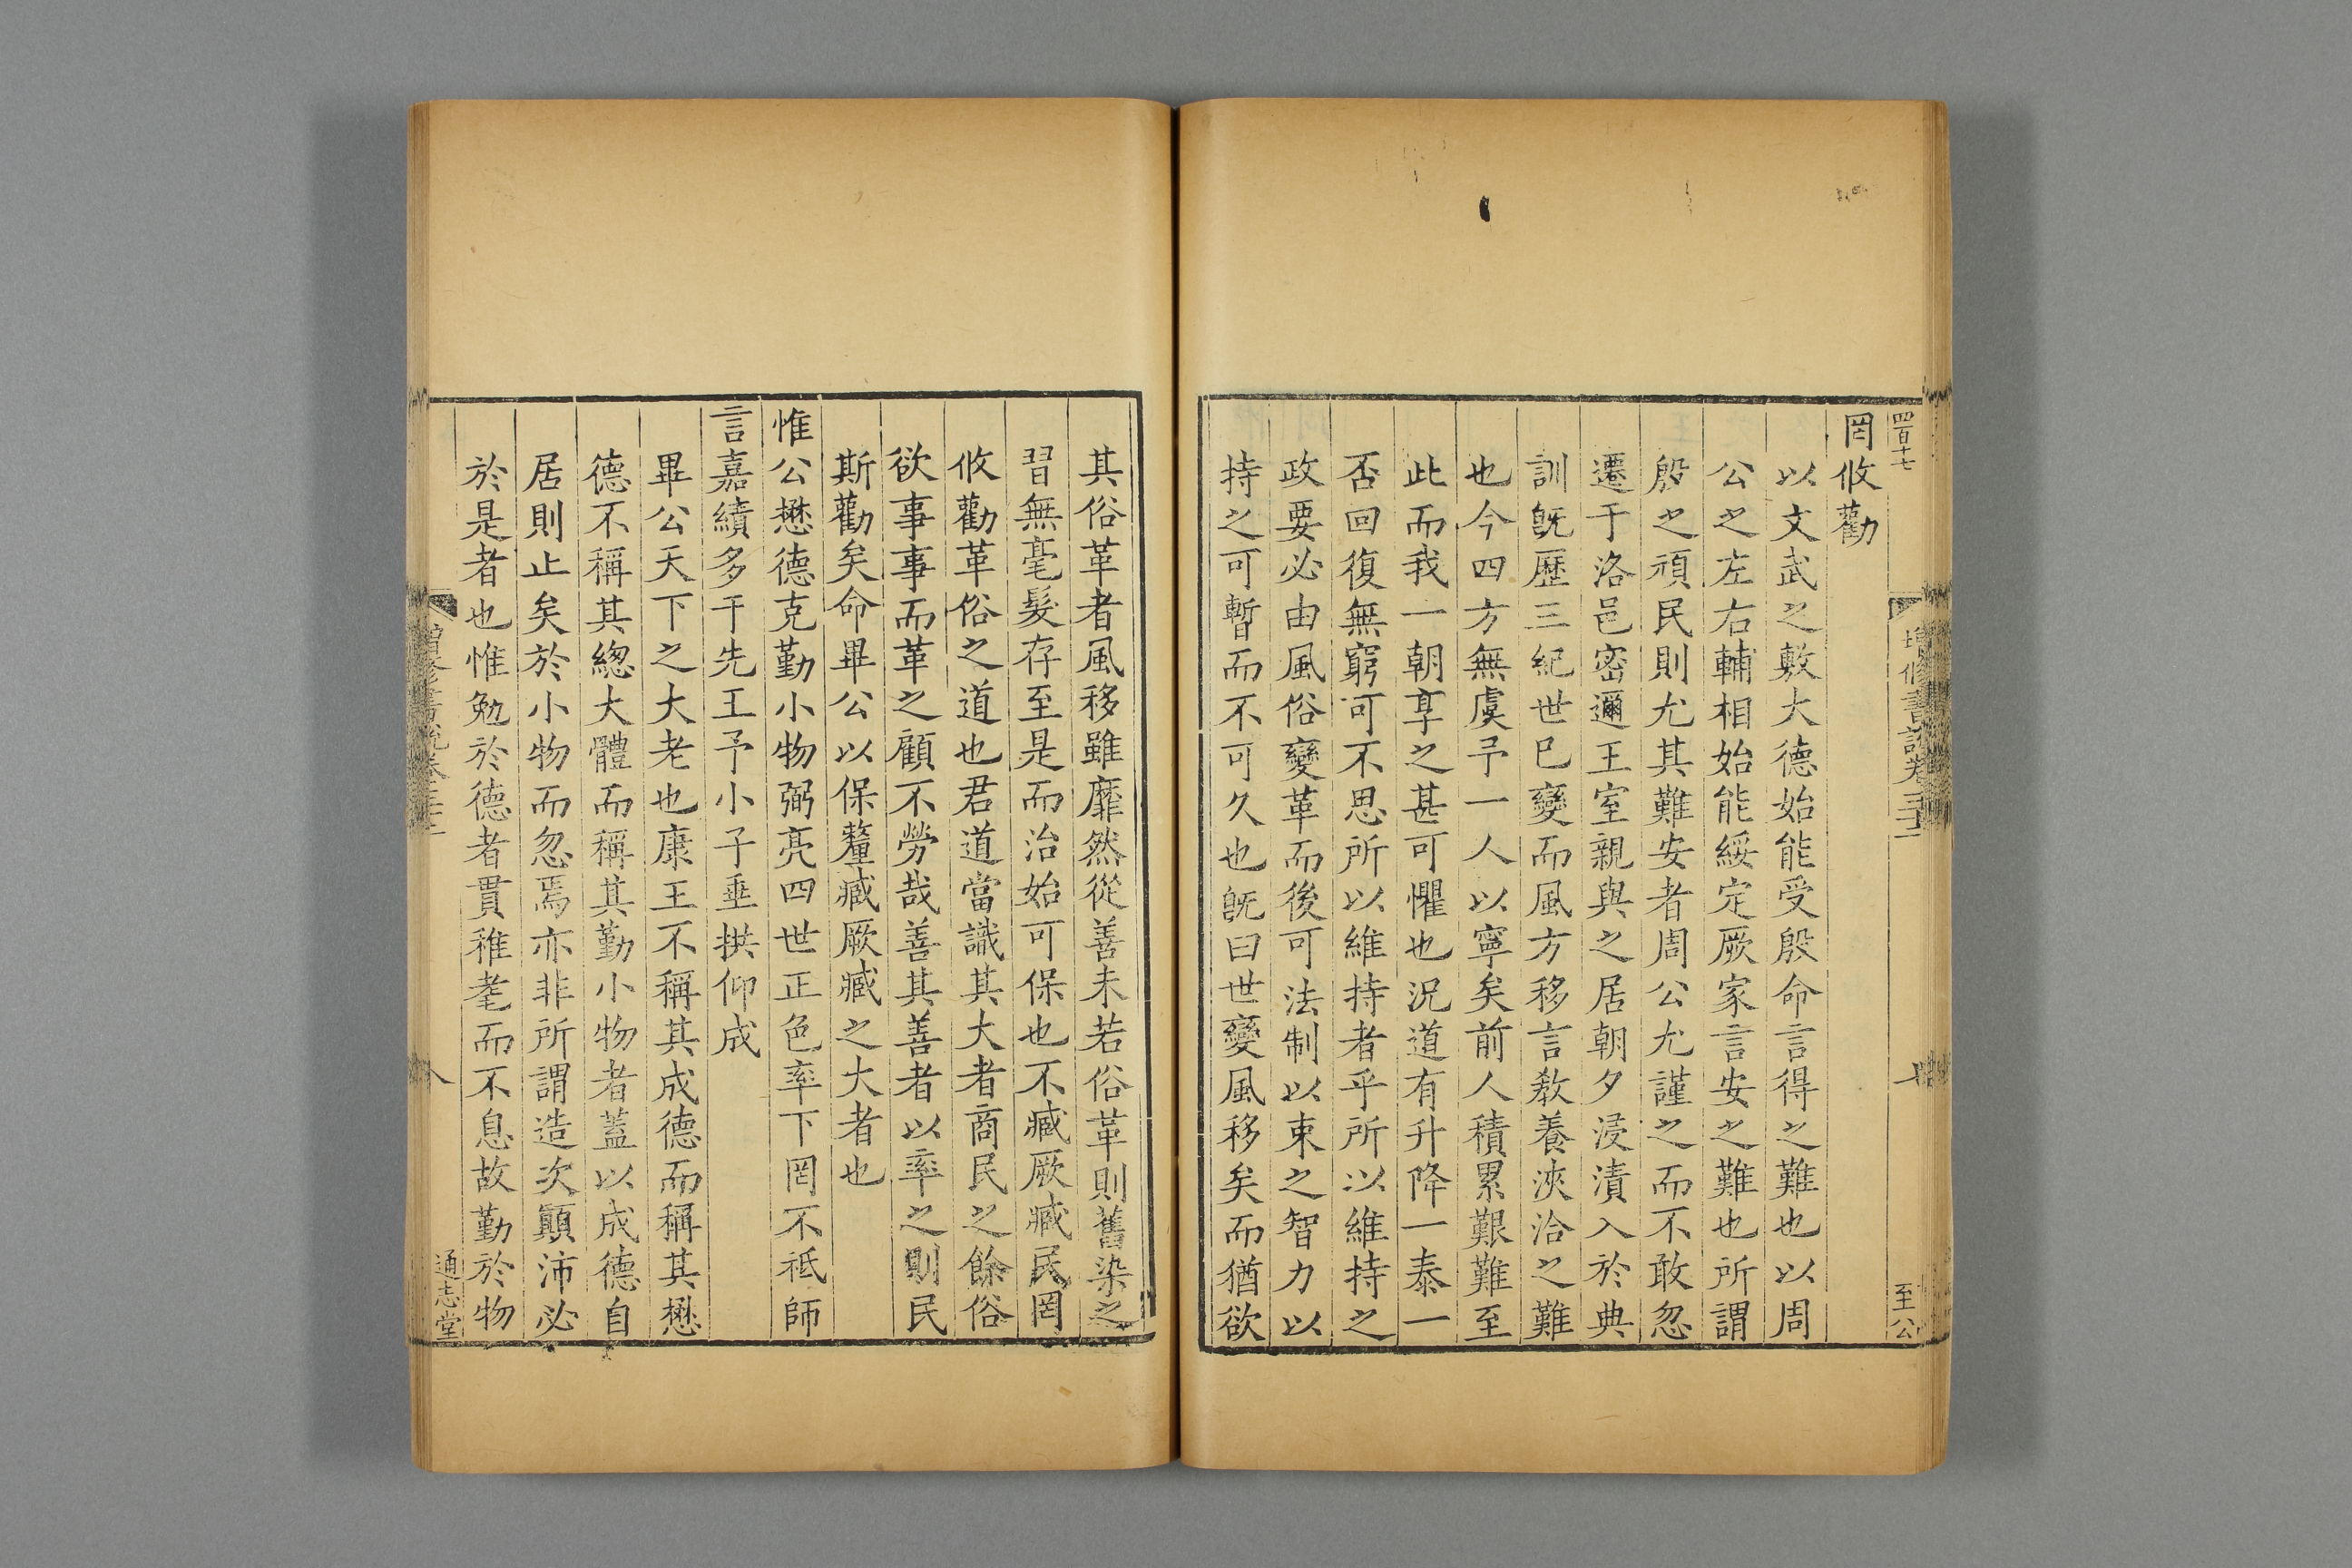 四百十七
至公
罔攸勸
以文武之敷大德始能受殷命言得之難也以周
公之左右輔相始能綏定厥家言安之難也所謂
殷之頑民則尤其難安者周公尤謹之而不敢忽
遷于洛邑密邇王室親與之居朝夕浸漬入於典
訓旣歷三紀世已變而風方移言敎養浹洽之難
也今四方無虞予一人以寧矣前人積累艱難至
此而我一朝享之甚可懼也況道有升降一泰一
否回復無窮可不思所以維持者乎所以維持之
政要必由風俗變革而後可法制以束之智力以
持之可暫而不可久也旣曰世變風移矣而猶欲
其俗革者風移雖靡然從善未若俗革則舊染之
習無毫髮存至是而治始可保也不臧厥臧民罔
攸勸革俗之道也君道當識其大者商民之餘俗
欲事事而革之顧不勞哉善其善者以率之則民
斯勸矣命畢公以保釐臧厥臧之大者也
惟公懋德克勤小物弼亮四世正色率下罔不祗師
言嘉績多于先王予小子垂拱仰成
畢公天下之大老也康王不稱其成德而稱其懋
德不稱其緫大體而稱其勤小物者蓋以成德自
居則止矣於小物而忽焉亦非所謂造次顚沛必
於是者也惟勉於德者貫稚耄而不息故勤於物
八
通志堂